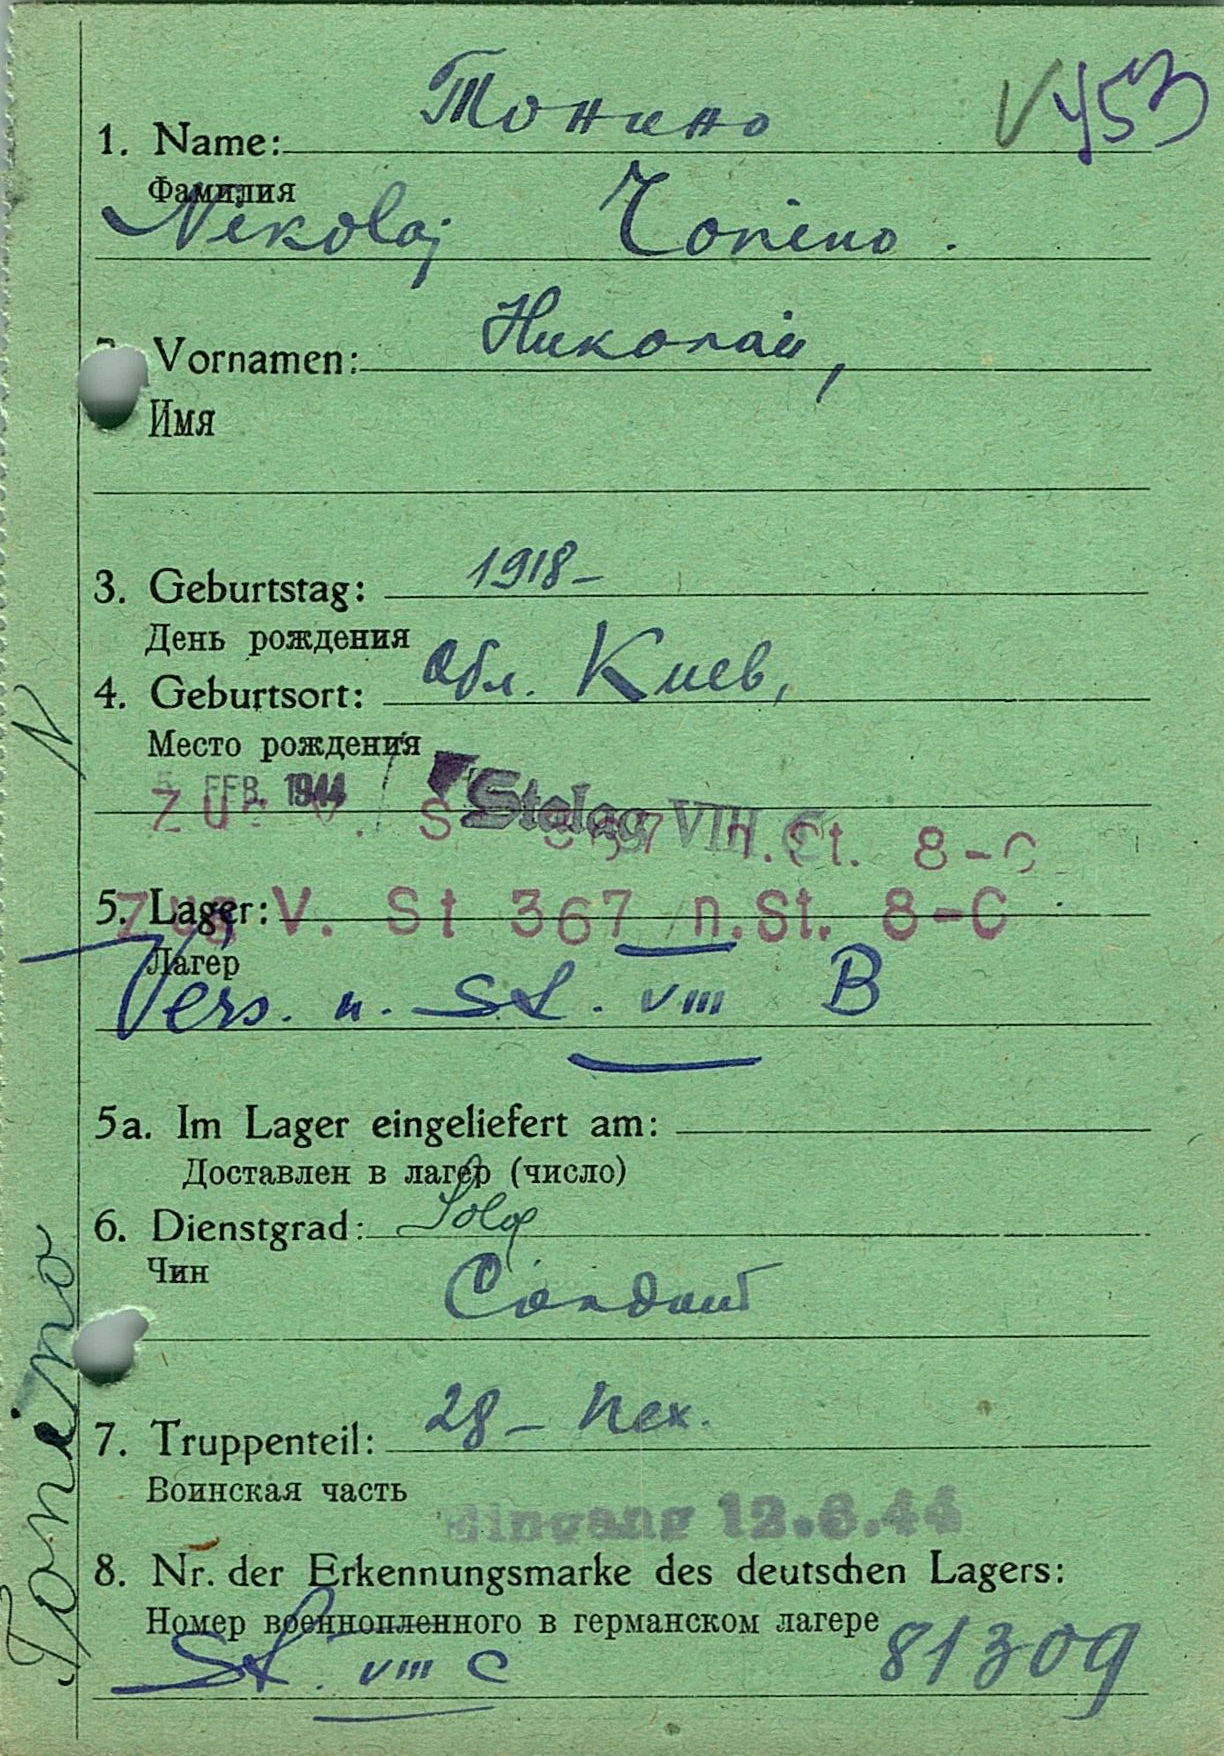 Тонино
V 453
1. Name:
Фамилия
Nikolaj Tonino.
Николай,
Vornamen:
Имя
1918-
3. Geburtstag:
День рождения
Обл. Киев,
4. Geburtsort:
Место рождения
5. FEB. 1944
Stalag VIII C
Zur V. St 367 n.St. 8-C
5. Lager: Zur V. St 367 n.St. 8-C
Лагер
Vers. n. St. VIII B
5a. Im Lager eingeliefert am:
Доставлен в лагер (число)
6. Dienstgrad: Sold
Чин
Солдат
28- пех.
7. Truppenteil:
Воинская часть
Eingang 12.6.44
8. Nr. der Erkennungsmarke des deutschen Lagers:
Номер военнопленного в германском лагере
St. VIII C 81309
N
Tonino